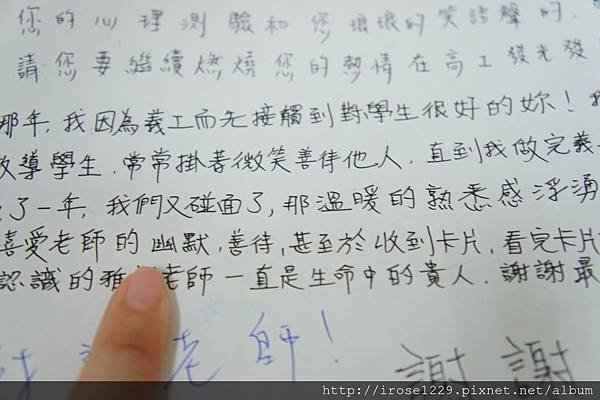 您的心理測驗和您琅琅的笑語聲的
請您要繼續燃燒您的熱情在高工發光發
那年,我因為義工而先接觸到對學生很好的妳!
教導學生,常常掛著微笑善待他人,直到我做完義
了一年,我們又碰面了,那溫暖的熟悉感浮湧
喜愛老師的幽默,善待,甚至於收到卡片,看完卡片
認識的雅 老師一直是生命中的貴人.謝謝最
老師!
謝謝
http://irose1229.pixnet.net/album